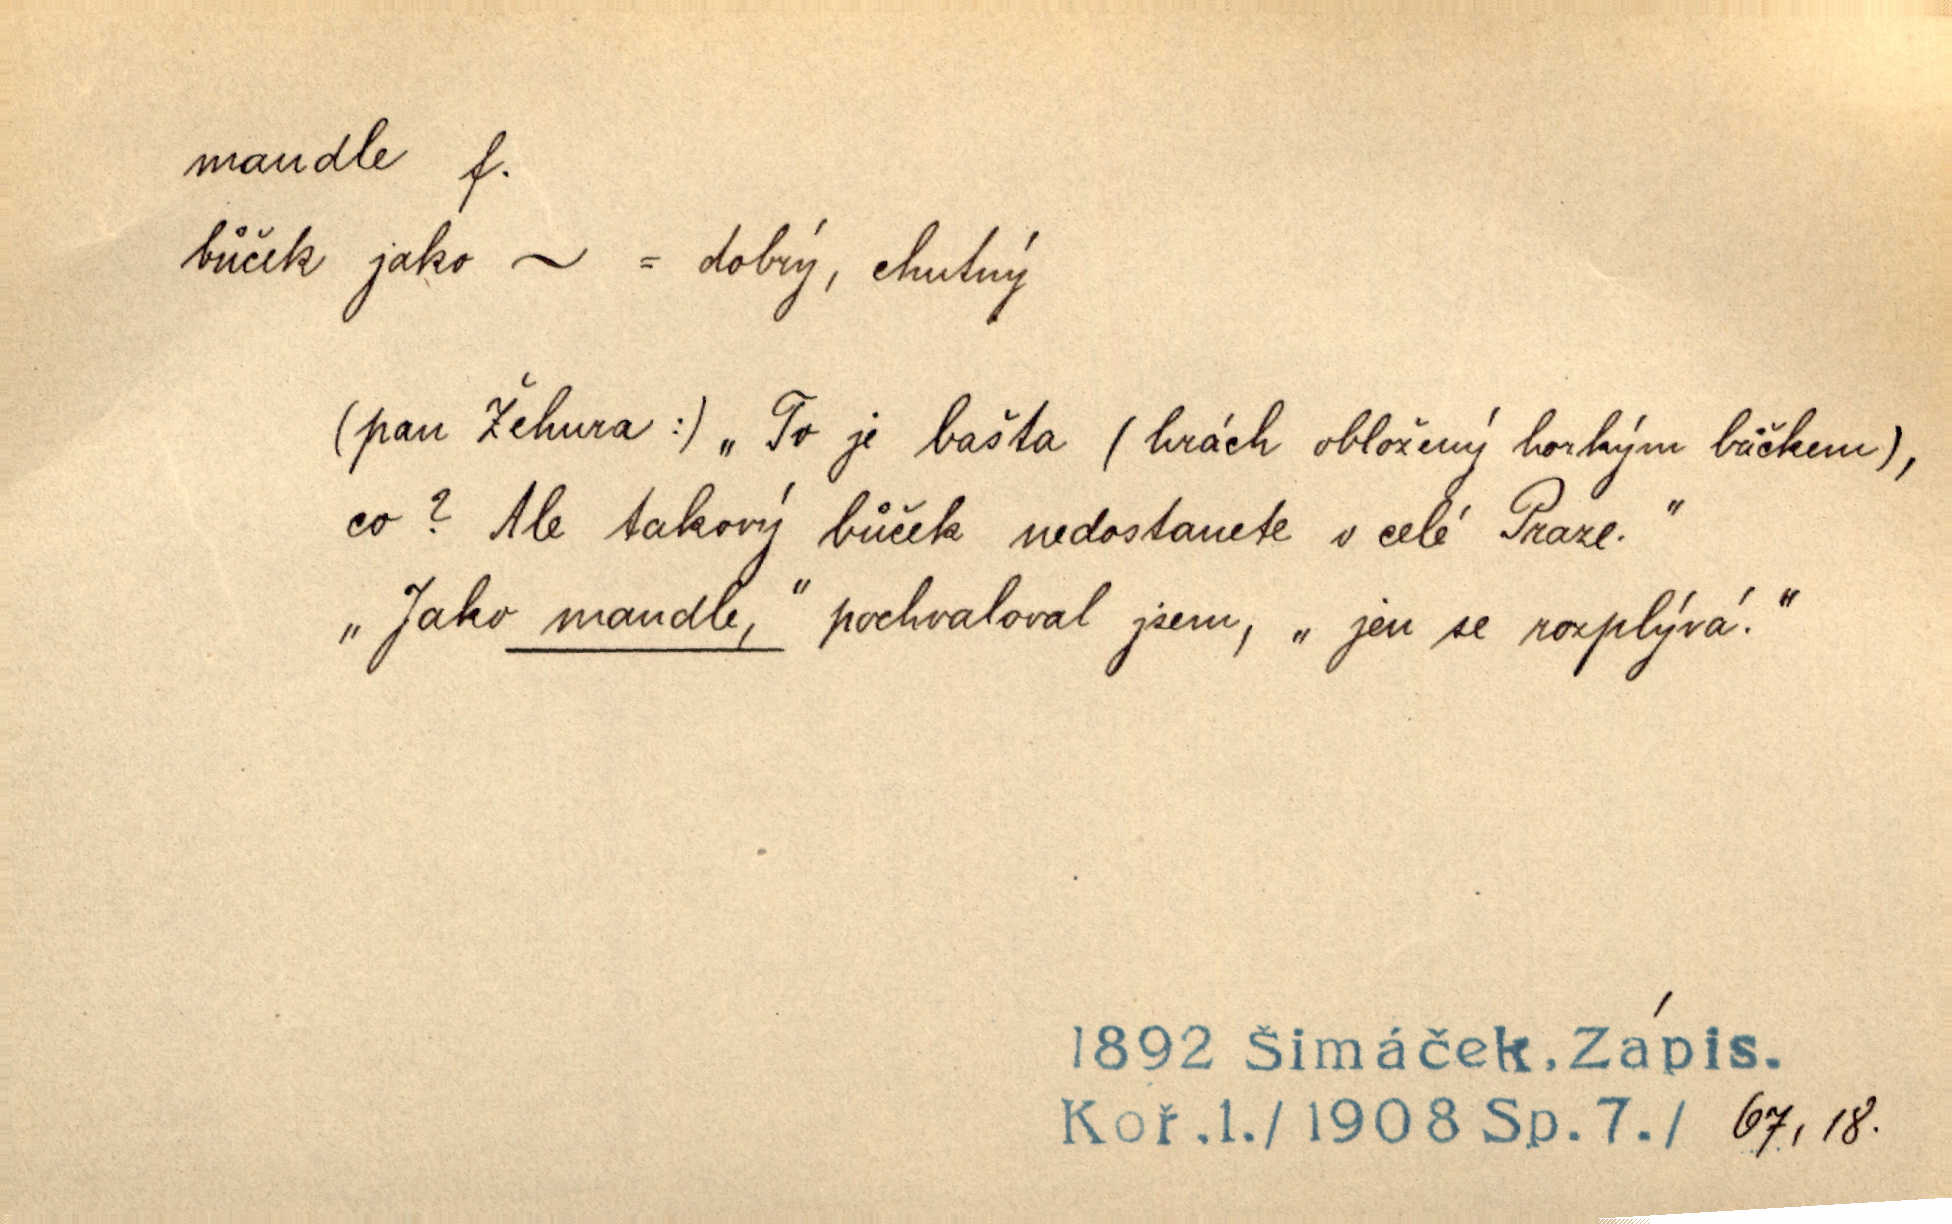 mandle f.
bůček jako ~ = dobrý, chutný
(pan Žehura:) „To je bašta (hrách obložený horkým bůčkem),
co? Ale takový bůček nedostanete v celé Praze."
„Jako mandle," pochvaloval jsem, „jen se rozplývá."
1892 Šimáček, Zápis.
Koř.1./1908 Sp.7./ 67, 18.